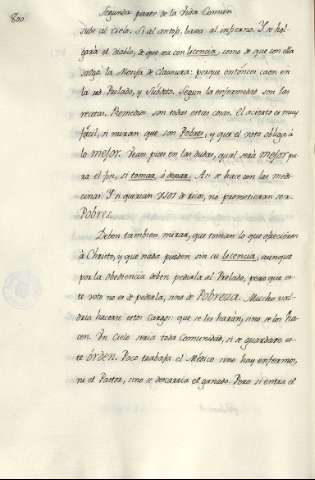 800
Segunda parte de la Vida Comun
sube al Cielo. Si al antojo, baxa al infierno. Y se hol-
gara el Diablo, de que sea con licencia, como de que con ella
salga la Monja de Clausura: porque entonces caen en
la red Prelado, y Subdito. Segun la enfermedad son las
recetas. Remedios son todas estas cosas. El acierto es muy
facil, si miran que son Pobres, y que el voto obliga à
lo mejor. Vean pues en las dudas, qual será mejor pa
ra el fin, si tomar, ò dexar. Asi se hace con las medi-
cinas. Y si quieren usar de ricos, no prometieran ser
Pobres.
Deben tambien mirar, que toman lo que ofrecieron
à Christo, y que nada pueden sin su licencia, aunque
por la obediencia deben pedirla al Prelado, pero que es-
te voto no es de pedirla, sino de Pobreza. Mucho val-
dria hacerse estos cargos: que se los harán, sino se los ha-
cen. Un Cielo seria toda Comunidad, si se guardara es-
te órden. Poco trabaja el Médico sino hay enfermos,
ni el Pastor, sino se descarria el ganado. Pero si entra el